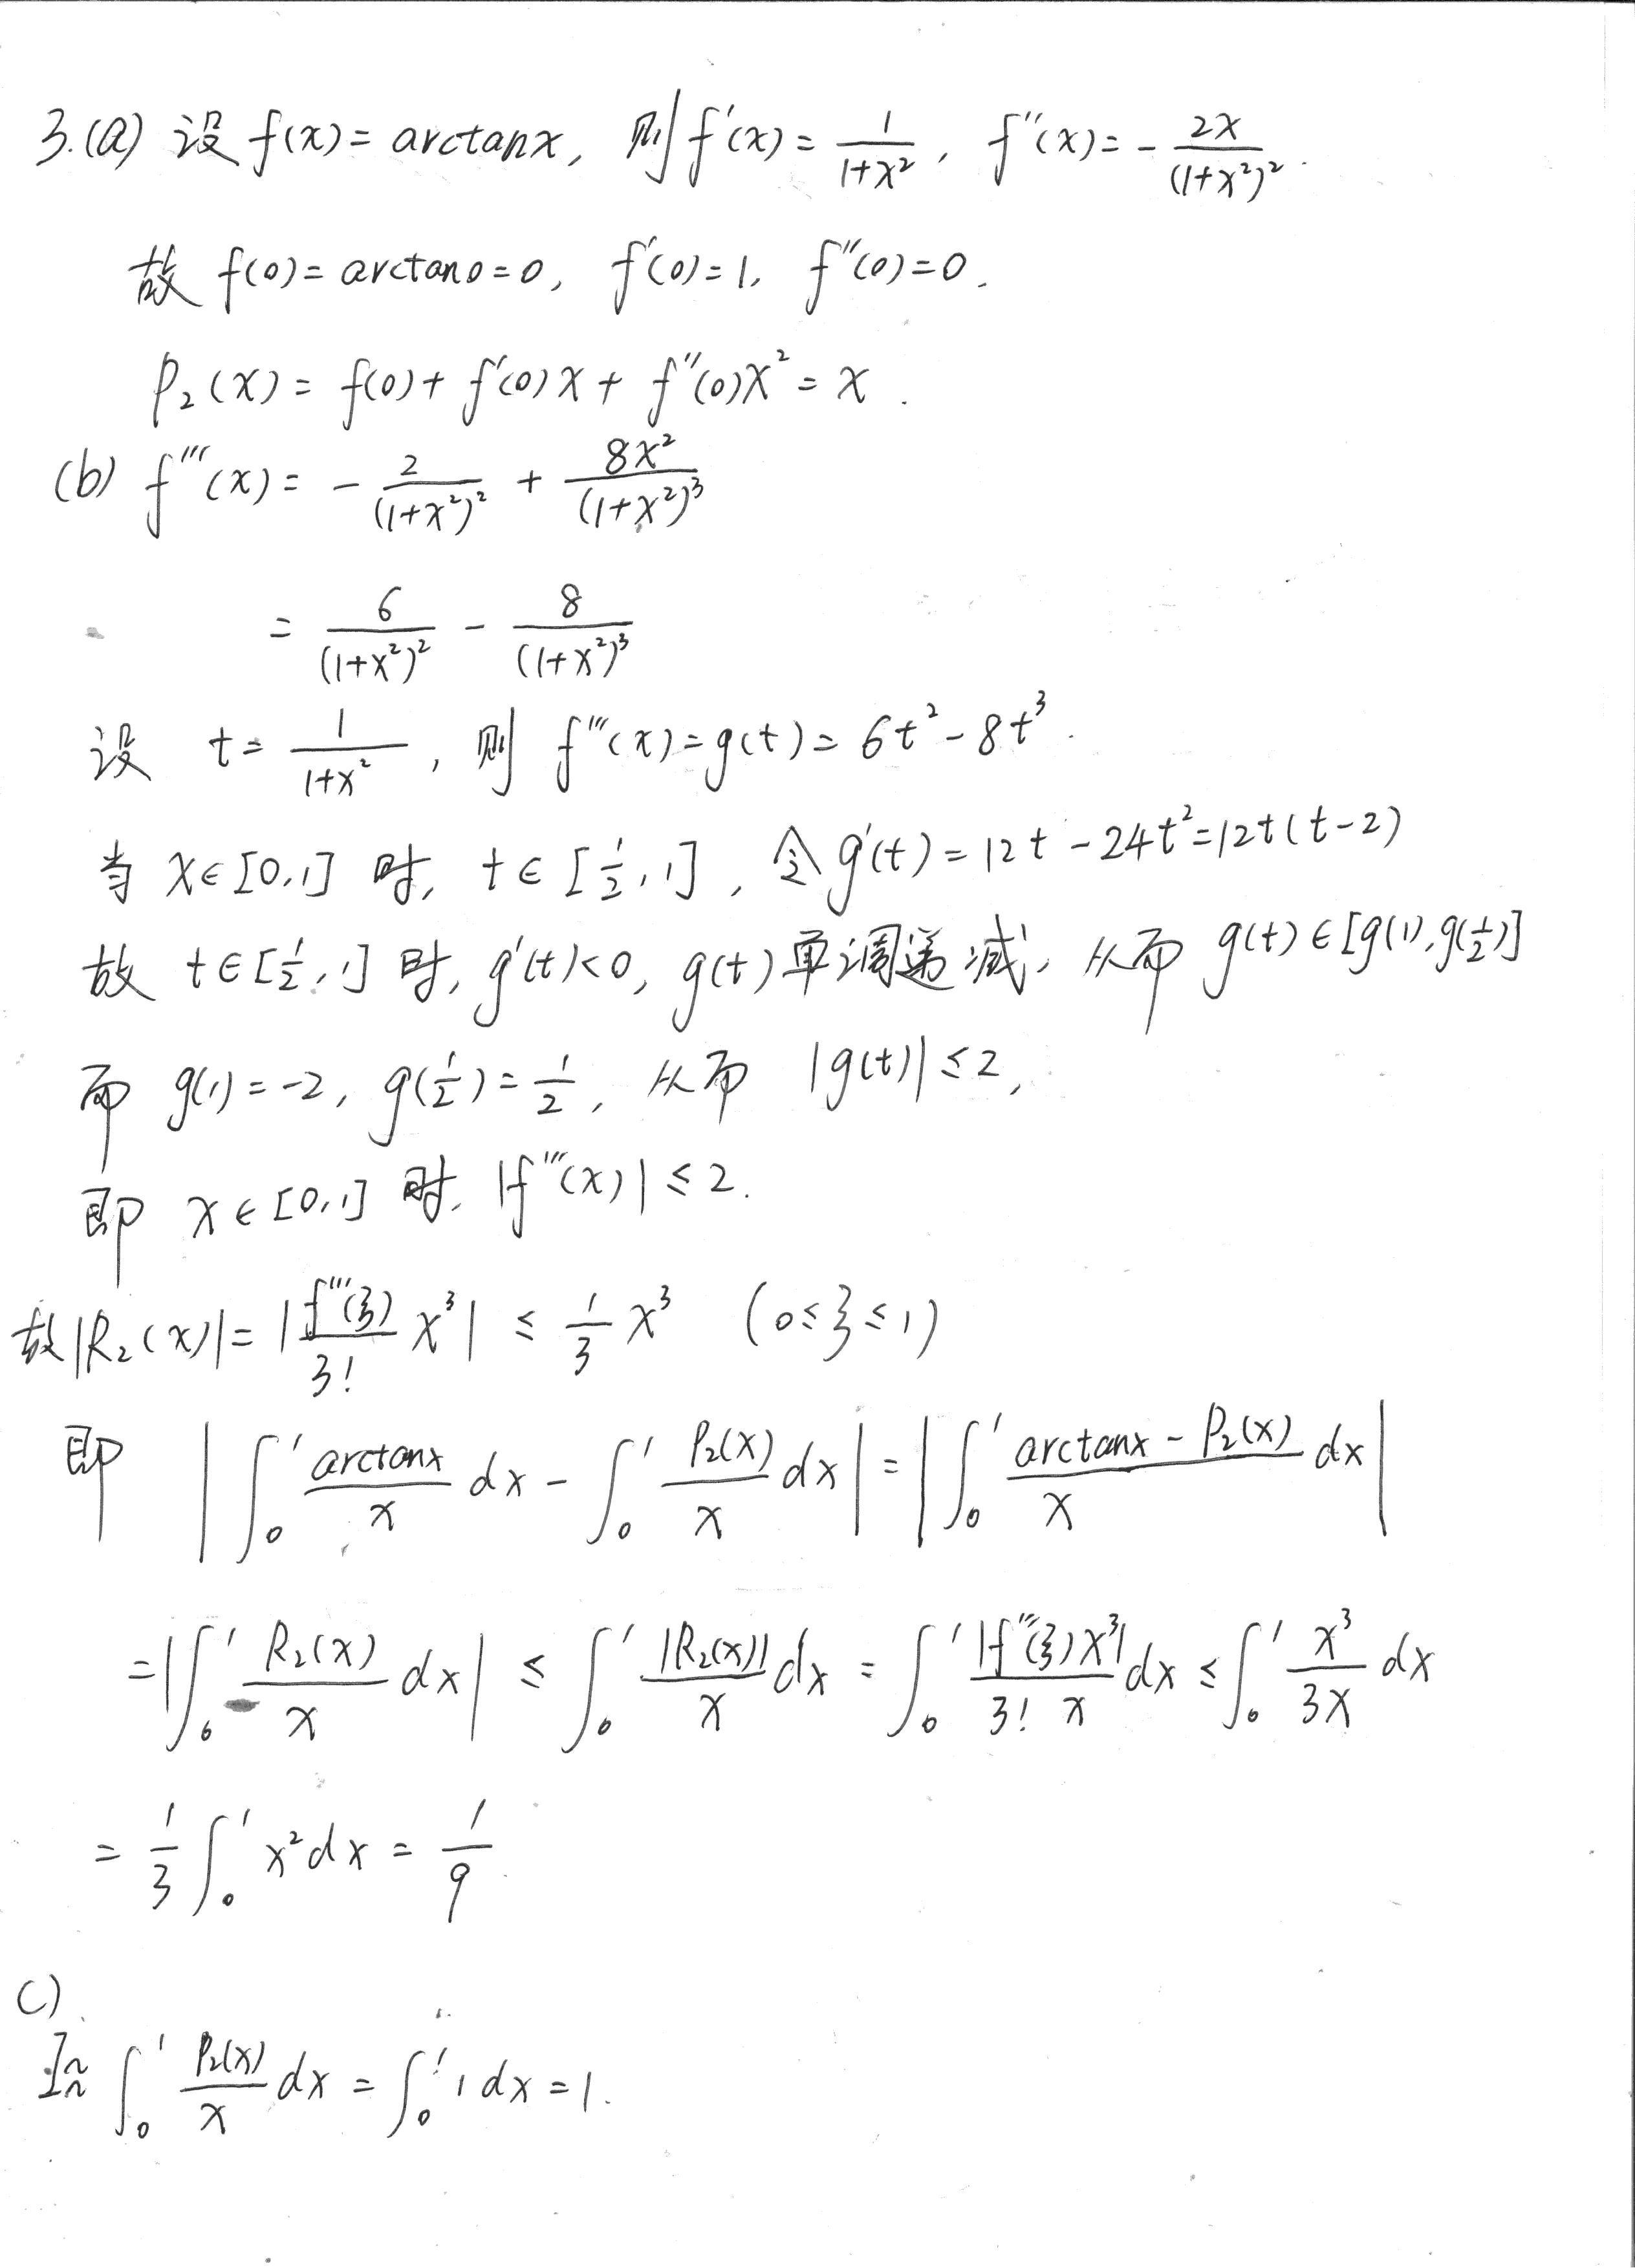 3.(a) 设 f(x)= arctanx, 则 f'(x) = \frac{1}{1+x^2}, f''(x) = -\frac{2x}{(1+x^2)^2}.
故 f(0)= arctan0 = 0, f'(0)=1, f''(0)=0.
P_2(x) = f(0)+ f'(0)x + f''(0)x^2 = x.
(b) f'''(x) = -\frac{2}{(1+x^2)^2} + \frac{8x^2}{(1+x^2)^3}
= \frac{6}{(1+x^2)^2} - \frac{8}{(1+x^2)^3}
设 t = \frac{1}{1+x^2}, 则 f'''(x)=g(t)= 6t^2-8t^3.
当 x∈[0,1] 时, t∈[\frac{1}{2},1], 令 g'(t)=12t-24t^2=12t(t-2)
故 t∈[\frac{1}{2},1] 时, g'(t)<0, g(t)单调递减, 从而 g(t)∈[g(1),g(\frac{1}{2})]
而 g(1)=-2, g(\frac{1}{2})=\frac{1}{2}, 从而 |g(t)|≤2,
即 x∈[0,1] 时, |f'''(x)|≤2.
故|R_2(x)|=|\frac{f'''(ξ)}{3!}x^3| ≤ \frac{1}{3}x^3 (0≤ξ≤1)
即 |∫_0^1 \frac{arctanx}{x} dx - ∫_0^1 \frac{P_2(x)}{x} dx| = |∫_0^1 \frac{arctanx - P_2(x)}{x} dx|
=|∫_0^1 \frac{R_2(x)}{x} dx| ≤ ∫_0^1 \frac{|R_2(x)|}{x} dx = ∫_0^1 \frac{|f'''(ξ)x^3|}{3! x} dx ≤ ∫_0^1 \frac{x^3}{3x} dx
= \frac{1}{3}∫_0^1 x^2 dx = \frac{1}{9}
C)
I≈ ∫_0^1 \frac{P_2(x)}{x} dx = ∫_0^1 1 dx = 1.